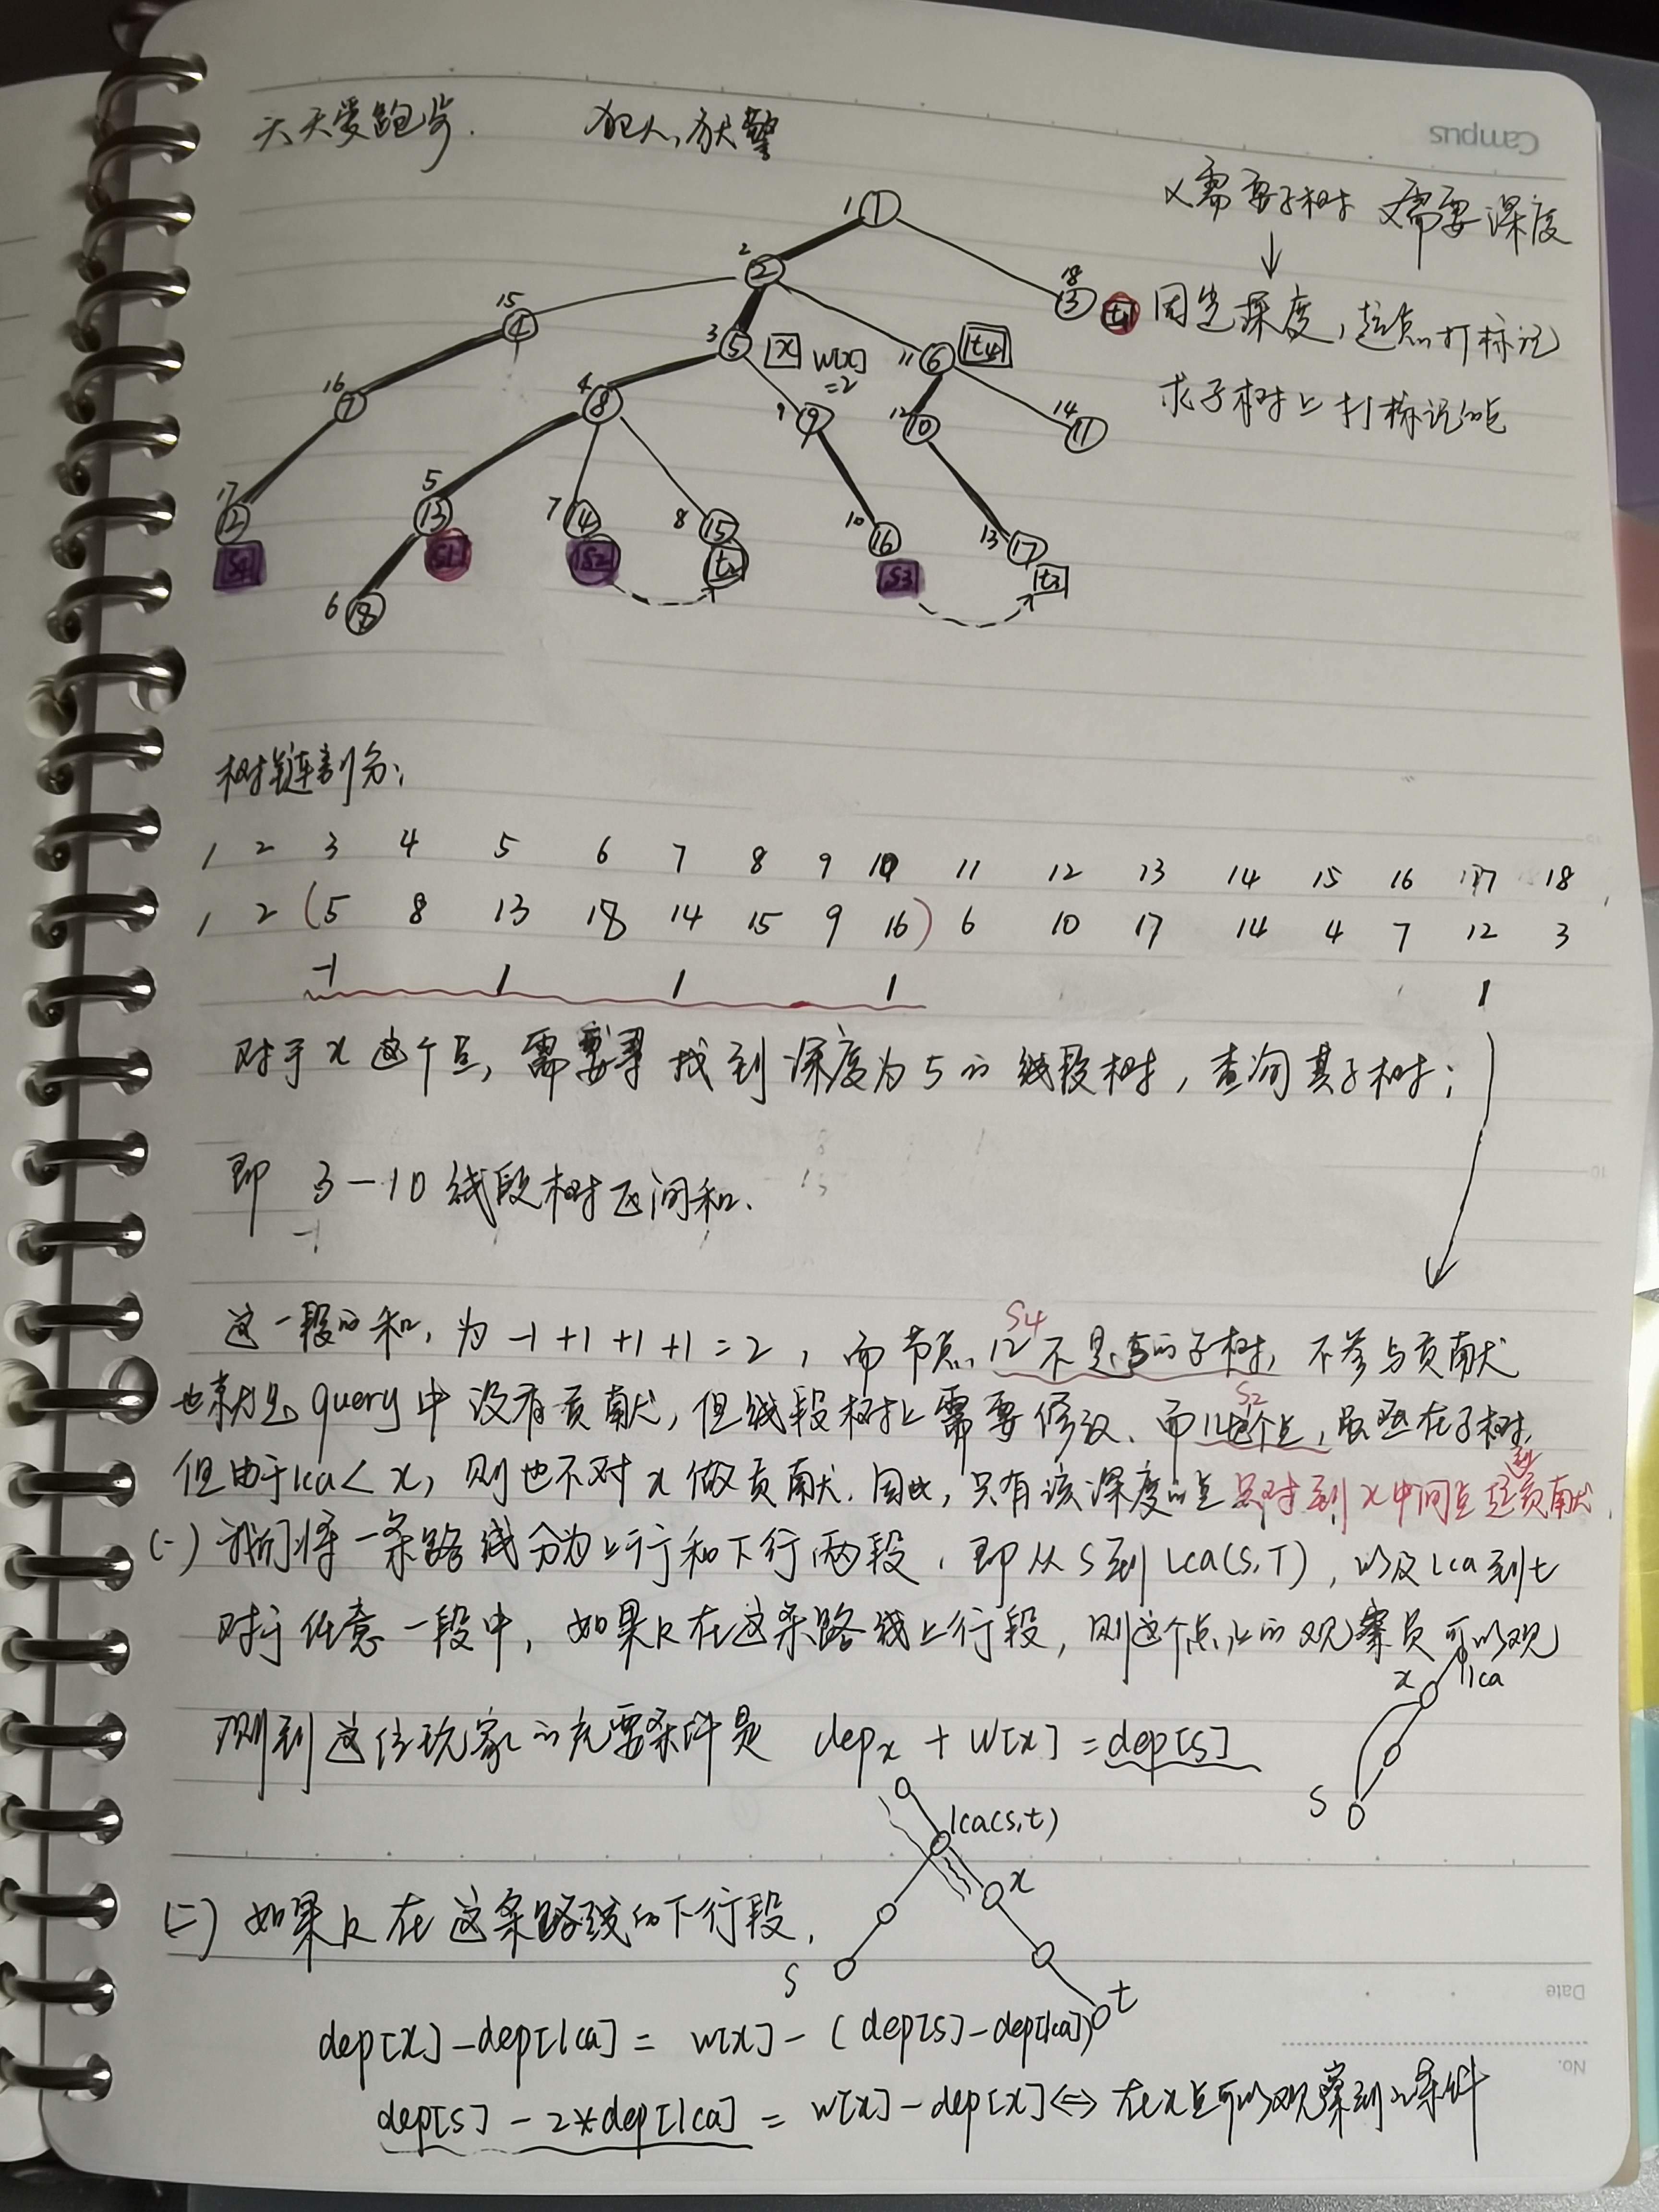 天天爱跑步.
Campus
又需要子树 又需要深度
↓
固定深度, 起点打标记
求子树上打标记的点
1 ①
2 ②
18 3 t1
15 4
3 5 x w[x]
=2
11 6 t4
16 7
4 8
9 9
12 10
14 11
17 12 S4
5 13 S1
7 14 S2
8 15 t2
10 16 S3
13 17 t3
6 18
树链剖分:
1 2 3 4 5 6 7 8 9 10 11 12 13 14 15 16 17 18
1 2 (5 8 13 18 14 15 9 16) 6 10 17 14 4 7 12 3
-1 1 1 1 1
对于x这个点, 需要寻找到深度为5的线段树, 查询其子树;
即 3-10 线段树区间和.
S4
这一段的和, 为 -1+1+1+1=2, 而节点12不是5的子树, 不参与贡献
S2
也就是query中没有贡献, 但线段树上需要修改. 而这个点, 虽然在子树,
但由于lca<x, 则也不对x做贡献. 因此, 只有该深度的点只对到x中间点贡献.
(一) 我们将一条路线分为上行和下行两段. 即从S到Lca(S,T), 以及lca到t
对于任意一段中, 如果k在这条路线上行段, 则这个点上的观察员可以观
x lca
测到这位玩家的充要条件是 depx + w[x] = dep[s]
S
lca(s,t)
x
(二) 如果k在这条路线的下行段,
S
t
dep[x]-dep[lca] = w[x] - (dep[s]-dep[lca])
dep[s] - 2*dep[lca] = w[x] - dep[x] <=> 在x点可以观察到的条件
Date
No.